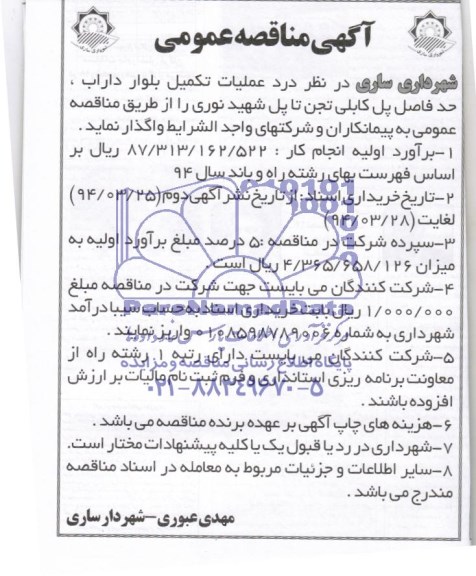 آگهی مناقصه عمومی
شهرداری ساری در نظر درد عملیات تکمیل بلوار داراب ،
حد فاصل پل کابلی تجن تا پل شهید نوری را از طریق مناقصه
عمومی به پیمانکاران و شرکتهای واجد الشرایط واگذار نماید .
۱-برآورد اولیه انجام کار : ۸۷/۳۱۳/۱۶۲/۵۲۲ ریال بر
اساس فهرست بهای رشته راه و باند سال ۹۴
۲-تاریخ خریداری اسناد : از تاریخ نشر آگهی دوم (۹۴/۰۳/۲۵)
لغایت (۹۴/۰۳/۲۸)
۳-سپرده شرکت در مناقصه :۵ درصد مبلغ برآورد اولیه به
میزان ۴/۳۶۵/۶۵۸/۱۲۶ ریال است .
۴-شرکت کنندگان می بایست جهت شرکت در مناقصه مبلغ
۱/۰۰۰/۰۰۰ ریال بابت خریداری اسناد به حساب سیبا درآمد
شهرداری به شماره ۰۱۰۸۵۹۸۷۸۹۰۰۶ واریز نمایند .
۵-شرکت کنندگان می بایست دارای رتبه ۱ رشته راه از
معاونت برنامه ریزی استانداری و فرم ثبت نام مالیات بر ارزش
افزوده باشند .
۶-هزینه های چاپ آگهی بر عهده برنده مناقصه می باشد .
۷-شهرداری در رد یا قبول یک یا کلیه پیشنهادات مختار است.
۸-سایر اطلاعات و جزئیات مربوط به معامله در اسناد مناقصه
مندرج می باشد .
مهدی عبوری-شهردار ساری
پایگاه اطلاع رسانی مناقصه و مزایده
۰۲۱-۸۸۳۴۹۶۷۰-۵